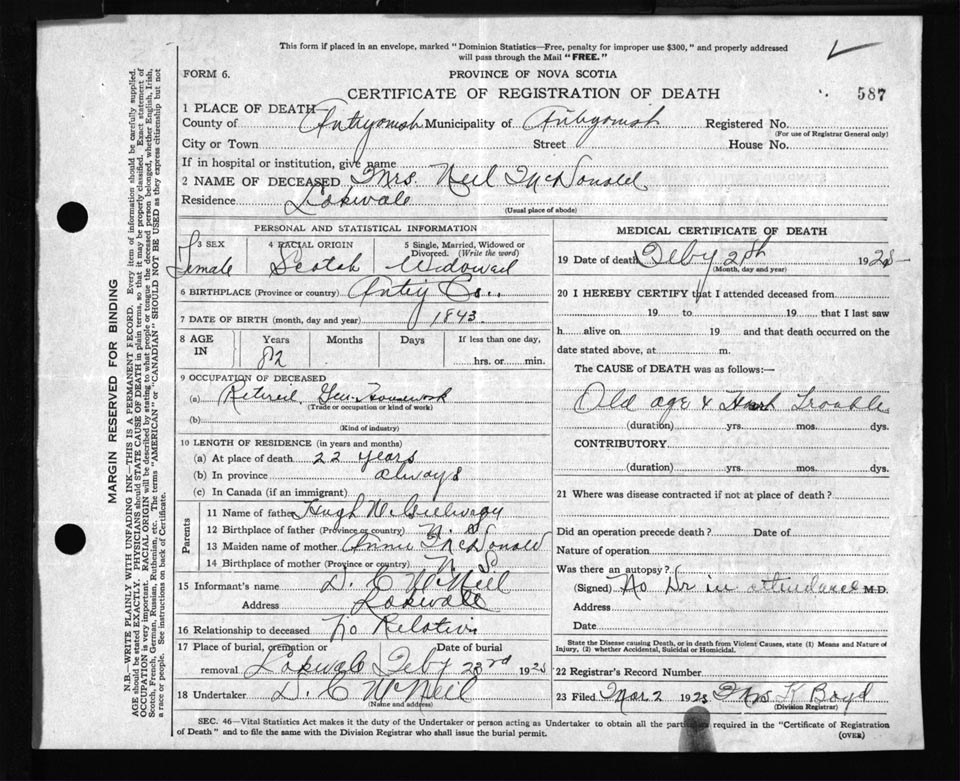 This form if placed in an envelope, marked "Dominion Statistics—Free, penalty for improper use $300," and properly addressed
will pass through the Mail "FREE."
FORM 6.
PROVINCE OF NOVA SCOTIA
CERTIFICATE OF REGISTRATION OF DEATH
587
1 PLACE OF DEATH
County of Antigonish Municipality of Antigonish Registered No.
(For use of Registrar General only)
City or Town Street House No.
If in hospital or institution, give name
2 NAME OF DECEASED Mrs. Neil McDonald
Residence Lakevale
(Usual place of abode)
PERSONAL AND STATISTICAL INFORMATION
3 SEX 4 RACIAL ORIGIN 5 Single, Married, Widowed or Divorced. (Write the word)
Female Scotch Widowed
6 BIRTHPLACE (Province or country) Antig Co.
7 DATE OF BIRTH (month, day and year) 1843
8 AGE IN Years Months Days If less than one day,
82 hrs. or min.
9 OCCUPATION OF DECEASED
(a) Retired Gen. Housework
(Trade or occupation or kind of work)
(b)
(Kind of industry)
10 LENGTH OF RESIDENCE (in years and months)
(a) At place of death 22 years
(b) In province always
(c) In Canada (if an immigrant)
Parents
11 Name of father Hugh
12 Birthplace of father (Province or country) N. S
13 Maiden name of mother Annie McDonald
14 Birthplace of mother (Province or country) N. S.
15 Informant's name D. C McNeil
Address Lakevale
16 Relationship to deceased No Relation
17 Place of burial, cremation or removal Lakevale Date of burial Feby 23rd 1925
18 Undertaker D. C McNeil
(Name and address)
MEDICAL CERTIFICATE OF DEATH
19 Date of death Feby 1925
(Month, day and year)
20 I HEREBY CERTIFY that I attended deceased from
19 to 19 that I last saw
h alive on 19 and that death occurred on
date stated above, at m.
The CAUSE of DEATH was as follows:—
Old age & Heart Trouble
(duration) yrs. mos. dys.
CONTRIBUTORY
(duration) yrs. mos. dys.
21 Where was disease contracted if not at place of death?
Did an operation precede death? Date of
Nature of operation
Was there an autopsy?
(Signed) No Dr in attendance M.D.
Address
Date
State the Disease causing Death, or in death from Violent Causes, state (1) Means and Nature of
Injury, (2) whether Accidental, Suicidal or Homicidal.
22 Registrar's Record Number
23 Filed Mar. 2 1925 Mrs K Boyd
(Division Registrar)
SEC. 46—Vital Statistics Act makes it the duty of the Undertaker or person acting as Undertaker to obtain all the required in the "Certificate of Registration
of Death" and to file the same with the Division Registrar who shall issue the burial permit.
(OVER)
MARGIN RESERVED FOR BINDING
N.B.—WRITE PLAINLY WITH UNFADING INK—THIS IS A PERMANENT RECORD. Every item of information should be carefully supplied.
AGE should be stated EXACTLY. PHYSICIANS should STATE CAUSE OF DEATH in plain terms, so that it may be properly classified. Exact statement of
OCCUPATION is very important. RACIAL ORIGIN will be described by stating to what people or tongue the deceased person belonged, whether English, Irish,
Scotch, French, German, Russian, Ruthenian, etc. The terms "AMERICAN" or "CANADIAN" SHOULD NOT BE USED as they express citizenship but not
a race or people. See instructions on back of Certificate.